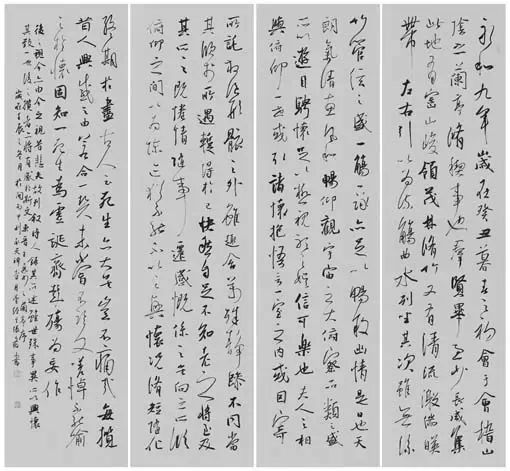 永和九年歲在癸丑暮春之初會于會稽山
陰之蘭亭脩稧事也群賢畢至少長咸集
此地有崇山峻領茂林脩竹又有清流激湍暎
帶左右引以為流觴曲水列坐其次雖無絲
竹管弦之盛一觴一詠亦足以暢敘幽情是日也天
朗氣清惠風和暢仰觀宇宙之大俯察品類之盛
所以遊目騁懷足以極視聽之娛信可樂也夫人之相
與俯仰一世或取諸懷抱悟言一室之內或因寄
所託放浪形骸之外雖趣舍萬殊靜躁不同當
其欣於所遇暫得於己快然自足不知老之將至及
其所之既惓情隨事遷感慨係之矣向之所欣
俯仰之間以為陳迹猶不能不以之興懷況脩短隨化
終期於盡古人云死生亦大矣豈不痛哉每攬
昔人興感之由若合一契未嘗不臨文嗟悼不能喻
之於懷固知一死生為虛誕齊彭殤為妄作
後之視今亦由今之視昔悲夫故列敘時人錄其所述雖世殊事異所以興懷
其致一也後之攬者亦將有感於斯文